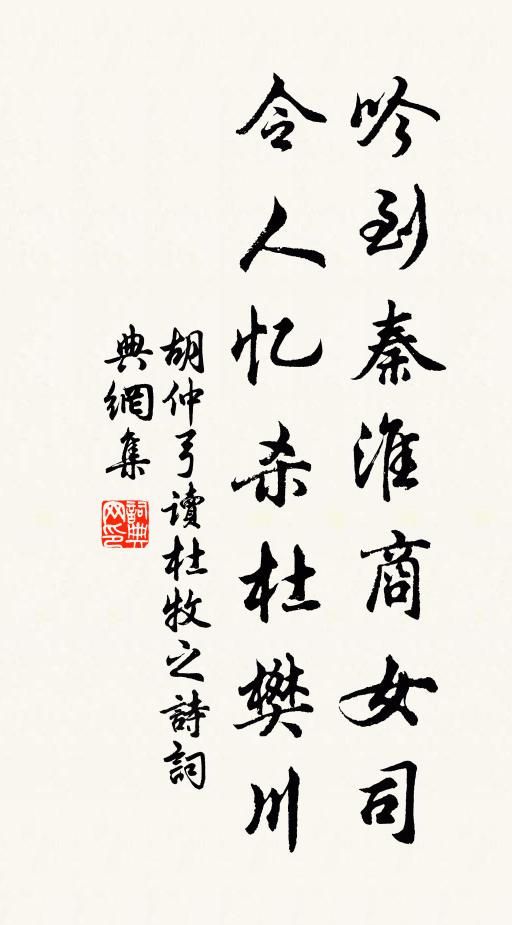 吟到秦淮商女司
令人忆杀杜樊川
胡仲弓讀杜牧之詩詞
典網集
詞典网印